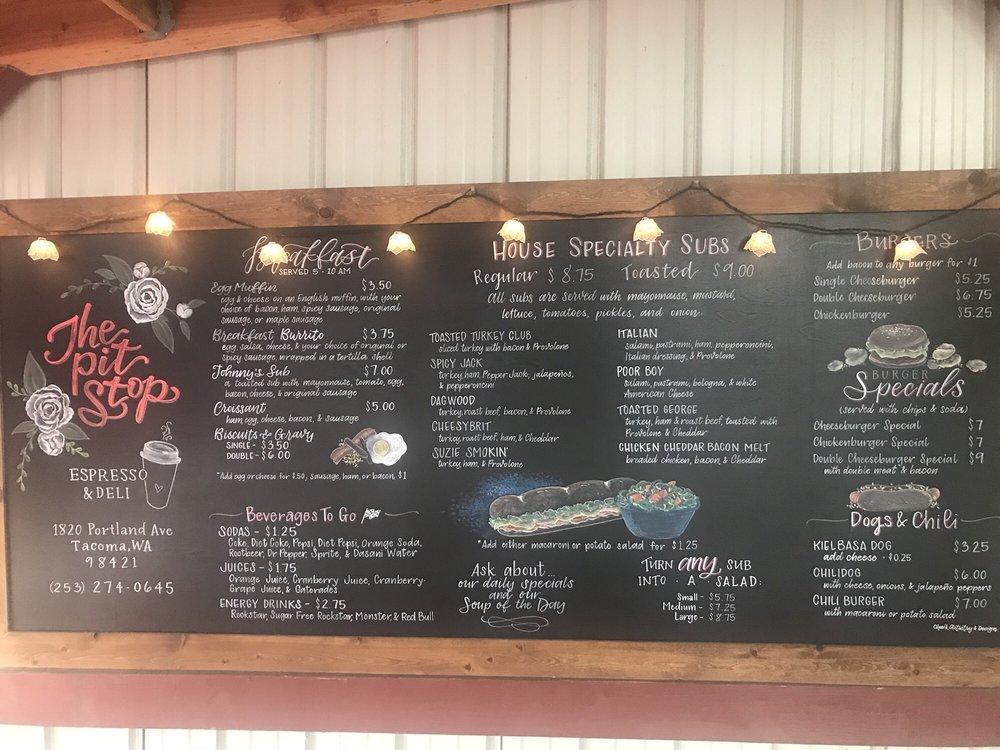 The
pit
Stop
ESPRESSO
& DELI
1820 Portland Ave
Tacoma, WA
98421
(253) 274-0645
Breakfast
SERVED 5-10 AM
Egg Muffin $3.50
egg & cheese on an English muffin, with your
choice of bacon, ham, spicy sausage, original
sausage, or maple sausage
Breakfast Burrito $3.75
egg, salsa, cheese, & your choice of original or
spicy sausage, wrapped in a tortilla shell
Johnny's Sub $7.00
a toasted sub with mayonnaise, tomato, egg,
bacon, cheese, & original sausage
Croissant $5.00
ham, egg, cheese, bacon, & sausage
Biscuits & Gravy
SINGLE - $3.50
DOUBLE - $6.00
*Add egg or cheese for $.50, sausage, ham, or bacon, $1
Beverages To Go
SODAS - $1.25
Coke, Diet Coke, Pepsi, Diet Pepsi, Orange Soda,
Rootbeer, Dr Pepper, Sprite, & Dasani Water
JUICES - $1.75
Orange Juice, Cranberry Juice, Cranberry-
Grape Juice, & Gatorades
ENERGY DRINKS - $2.75
Rockstar, Sugar Free Rockstar, Monster, & Red Bull
HOUSE SPECIALTY SUBS
Regular $8.75 Toasted $9.00
All subs are served with mayonnaise, mustard,
lettuce, tomatoes, pickles, and onion.
TOASTED TURKEY CLUB
sliced turkey with bacon & Provolone
SPICY JACK
turkey, ham, Pepper Jack, jalapeños,
& pepperoncini
DAGWOOD
turkey, roast beef, bacon, & Provolone
CHEESYBRIT
turkey, roast beef, ham, & Cheddar
SUZIE SMOKIN'
turkey, ham, & Provolone
ITALIAN
salami, pastrami, ham, pepperoncini,
Italian dressing, & Provolone
POOR BOY
salami, pastrami, bologna, & white
American Cheese
TOASTED GEORGE
turkey, ham & roast beef, toasted with
Provolone & Cheddar
CHICKEN CHEDDAR BACON MELT
breaded chicken, bacon, & Cheddar
*Add either macaroni or potato salad for $1.25
Ask about...
our daily specials
and our
Soup of the Day
TURN any SUB
INTO · A · SALAD:
Small - $5.75
Medium - $7.25
Large - $8.75
BURGERS
Add bacon to any burger for $1
Single Cheeseburger $5.25
Double Cheeseburger $6.75
Chickenburger $5.25
BURGER
Specials
(served with chips & soda)
Cheeseburger Special $7
Chickenburger Special $7
Double Cheeseburger Special $9
with double meat & bacon
Dogs & Chili
KIELBASA DOG $3.25
add cheese - $0.25
CHILIDOG $6.00
with cheese, onions, & jalapeño peppers
CHILI BURGER $7.00
with macaroni or potato salad
Chalk Artistry & Designs